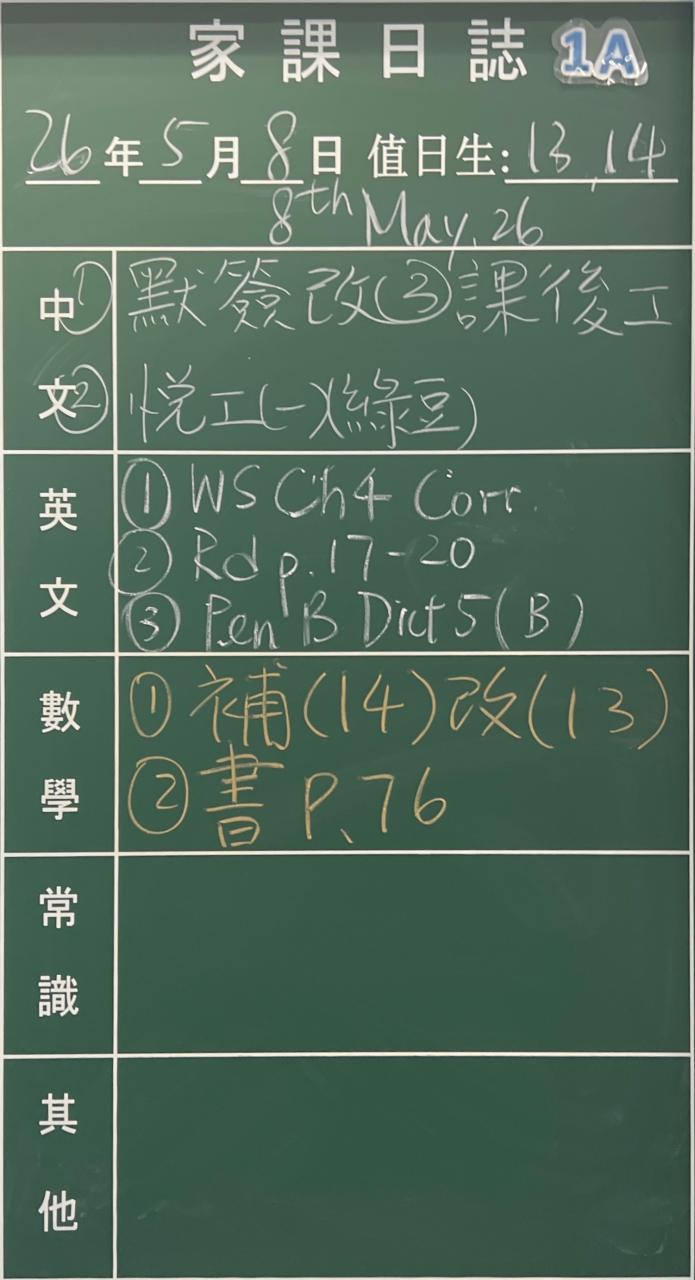 家課日誌 1A
26年5月8日 值日生:13,14
8th May, 26
中文
① 默簽改 ③ 課後工
② 悅工(一)(綠豆)
英文
① WS Ch4 Corr.
② Rd p.17-20
③ Pen B Dict 5 (B)
數學
① 補(14)改(13)
② 書 P.76
常識
其他